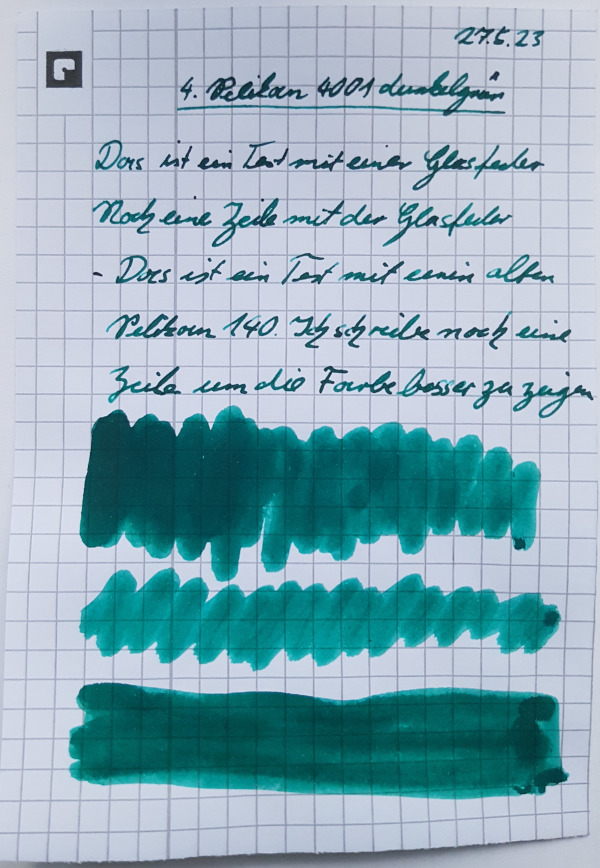 27.5.23
4. Pelikan 4001 dunkelgrün
Das ist ein Test mit einer Glasfeder
Noch eine Zeile mit der Glasfeder
- Das ist ein Test mit einem alten
Pelikan 140. Ich schreibe noch eine
Zeile um die Farbe besser zu zeigen